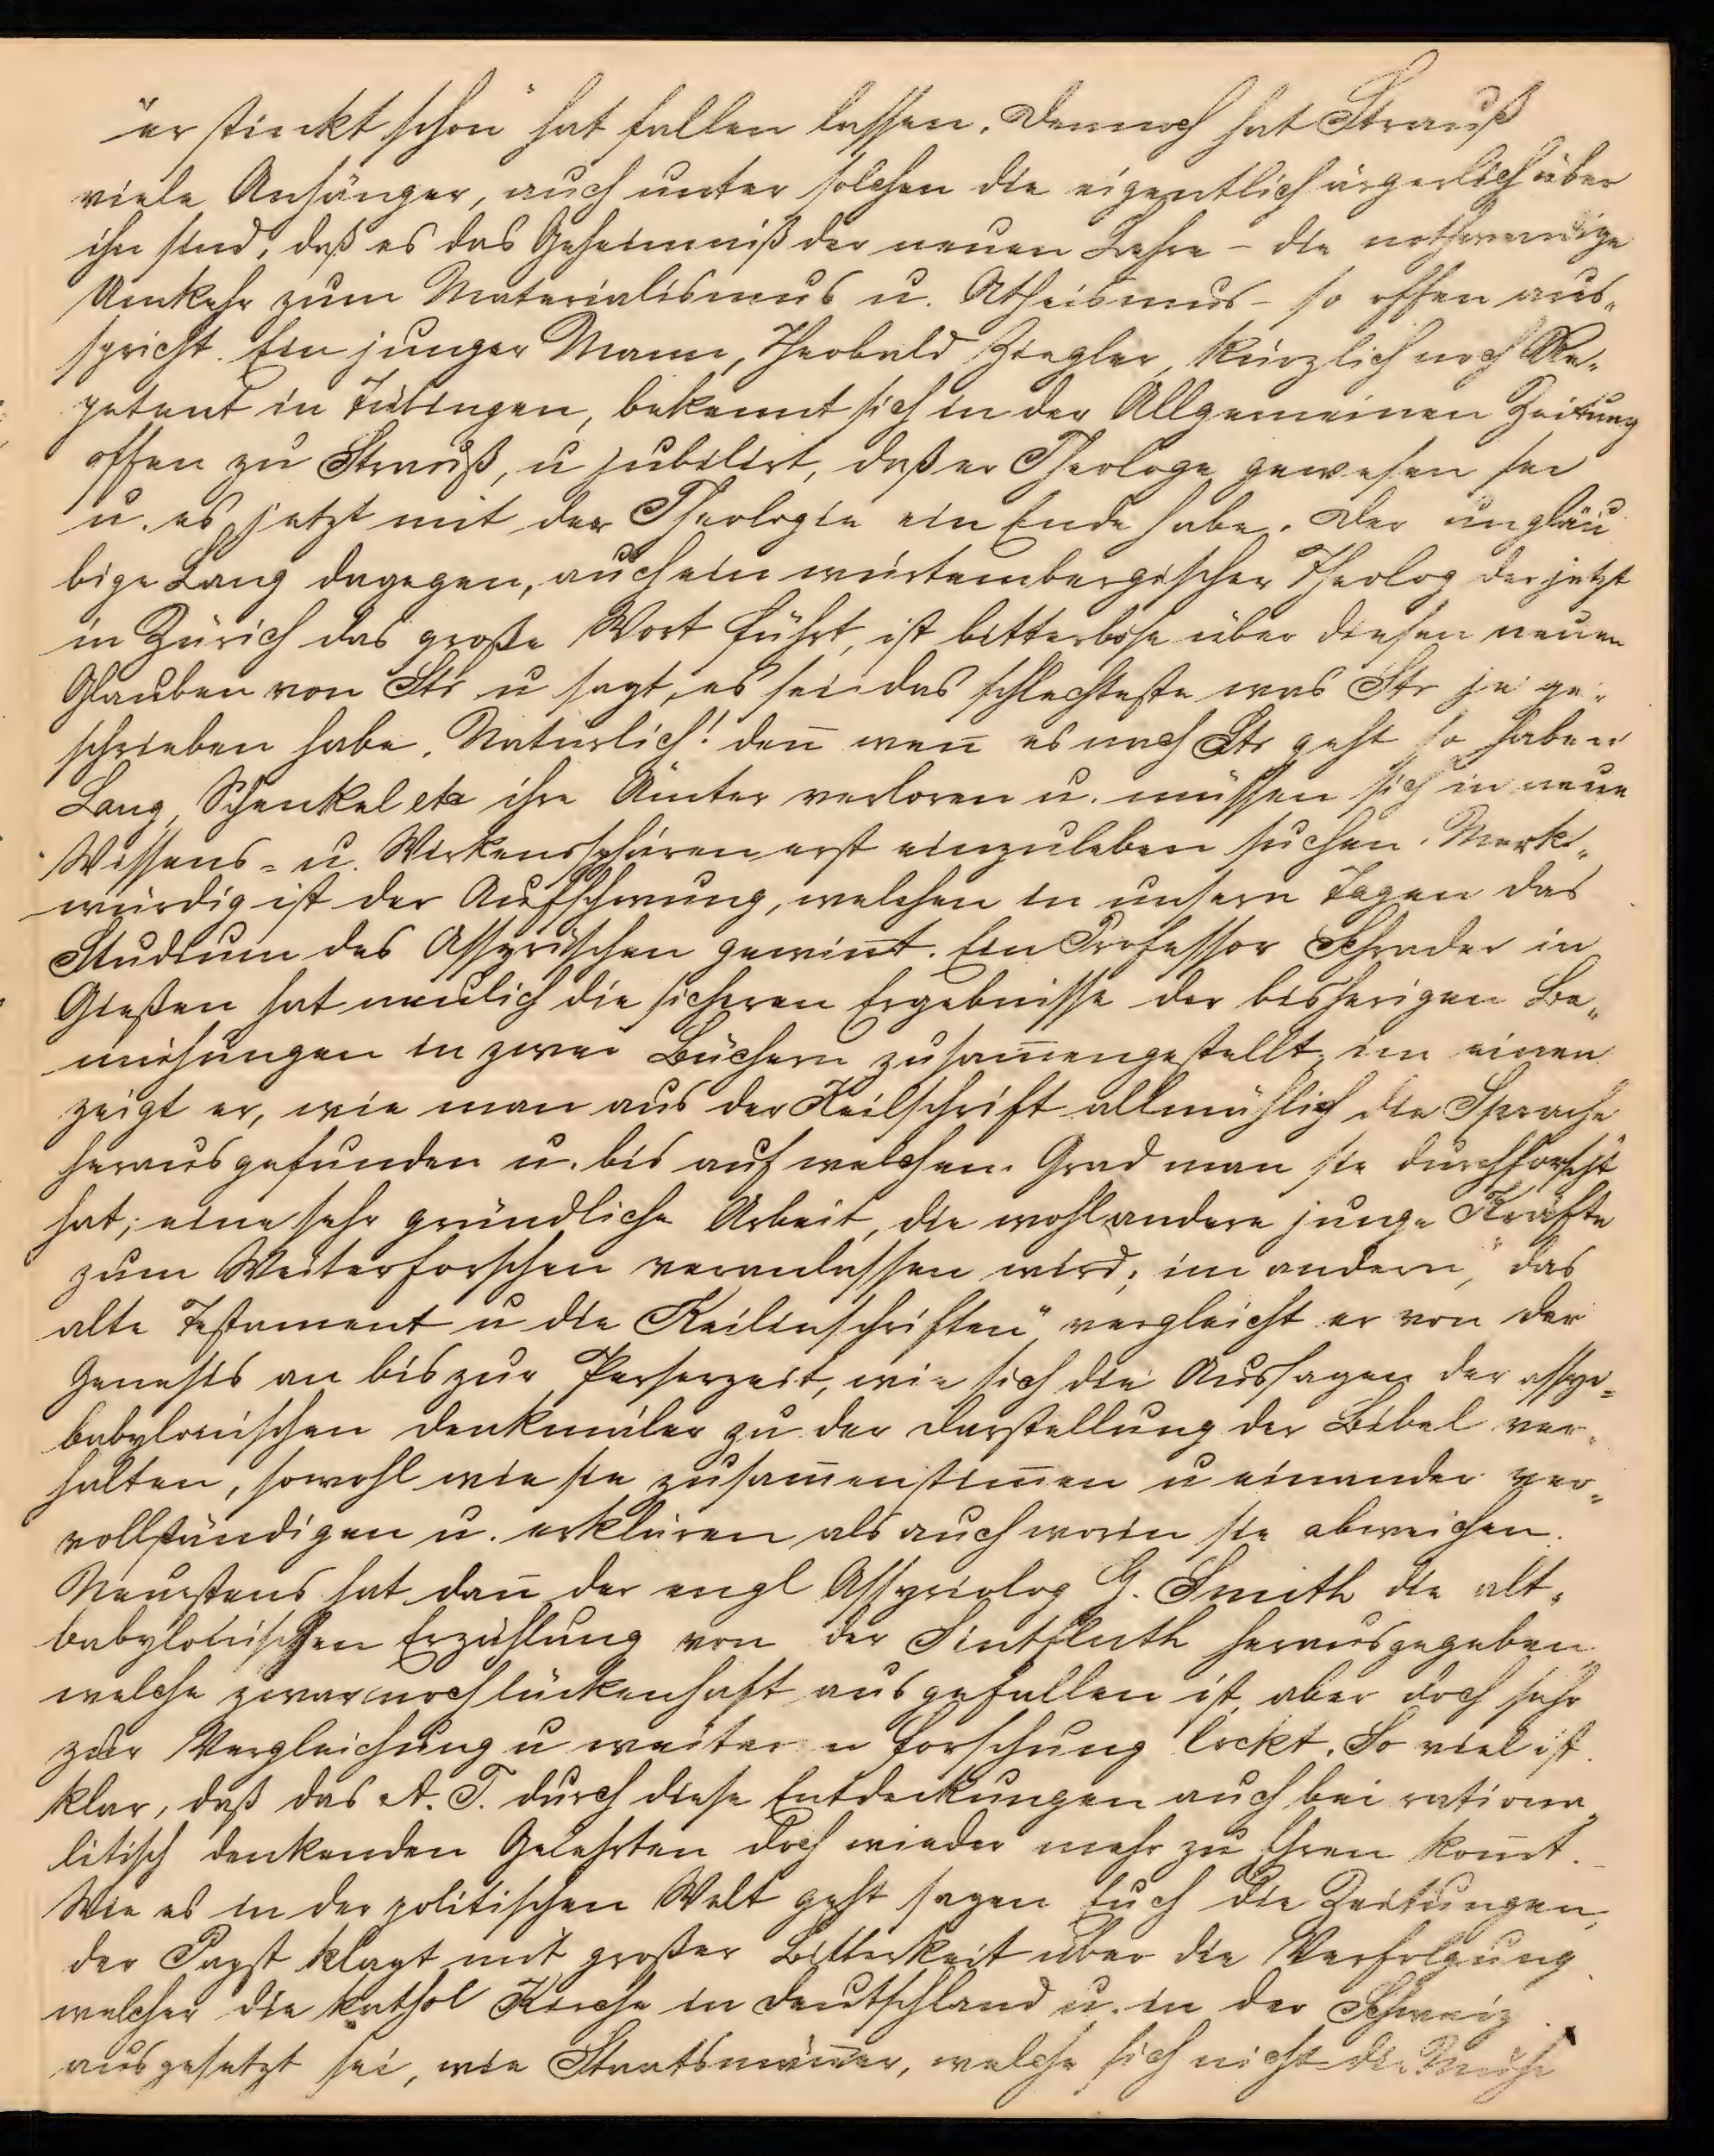 "er stinckt schon" hat fallen lassen. Dennoch hat Strauß
viele Anhänger, auch unter solchen die eigentlich ärgerlich über
ihn sind, daß es das Geheimniß der neuen Lehre – die nothwendige
Umkehr zum Materialismus u. Atheismus – so offen aus„
spricht. Ein junger Mann, Theobald Ziegler, kürzlich noch Re„
petent in Tübingen, bekennt sich in der Allgemeinen Zeitung
offen zu Strauß, u jubilirt, daß er Theologe gewesen sei
u. es jetzt mit der Theologie ein Ende habe. Der ungläu
bige Lang dagegen, auch ein würtembergischer Theolog der jetzt
in Zürich das große Wort führt, ist bitterböse über diesen neuen
Glauben von Str u sagt, es sei das schlechteste was Str je ge„
schrieben habe. Natürlich! den̅ wen̅ es nach Str geht so haben
Lang, Schenkel etc ihre Ämter verloren u. müssen sich in neue
Wissens- u. Wirkenssphären erst einzuleben suchen. Merk„
würdig ist der Aufschwung, welchen in unsern Tagen das
Studium des Assyrischen gewin̅t. Ein Professor Schrader in
Gießen hat neulich die sicheren Ergebnisse der bisherigen Be„
mühungen in zwei Büchern zusam̅engestellt, im einen
zeigt er, wie man aus der Keilschrift allmählich die Sprache
herausgefunden u. bis auf welchen Grad man sie durchforscht
hat; eine sehr gründliche Arbeit, die wohl andere junge Kräfte
zum Weiterforschen veranlassen wird; im andern, "das
alte Testament u die Keilinschriften" vergleicht er von der
Genesis an bis zur Perserzeit, wie sich die Aussagen der assyr„
babylonischen Denkmäler zu der Darstellung der Bibel ver„
halten, sowohl wie sie zusam̅enstim̅en u einander ver„
vollständigen u. erklären als auch worin sie abweichen.
Neustens hat dan̅ der engl Assyriolog G. Smith die alt„
babylonischen Erzählung von der Sintfluth herausgegeben,
welche zwar noch lückenhaft ausgefallen ist, aber doch sehr
zur Vergleichung u weitern Forschung lockt. So viel ist
klar, daß das A. T. durch diese Entdeckungen auch bei rationa„
litisch denkenden Gelehrten doch wieder mehr zu Ehren kom̅t.
Wie es in der politischen Welt geht sagen Euch die Zeitungen,
der Papst klagt mit großer Bitterkeit über die Verfolgung
welcher die kathol Kirche in Deutschland u. in der Schweiz
ausgesetzt sei, wie Staatsmän̅er, welche sich nicht die Mühe